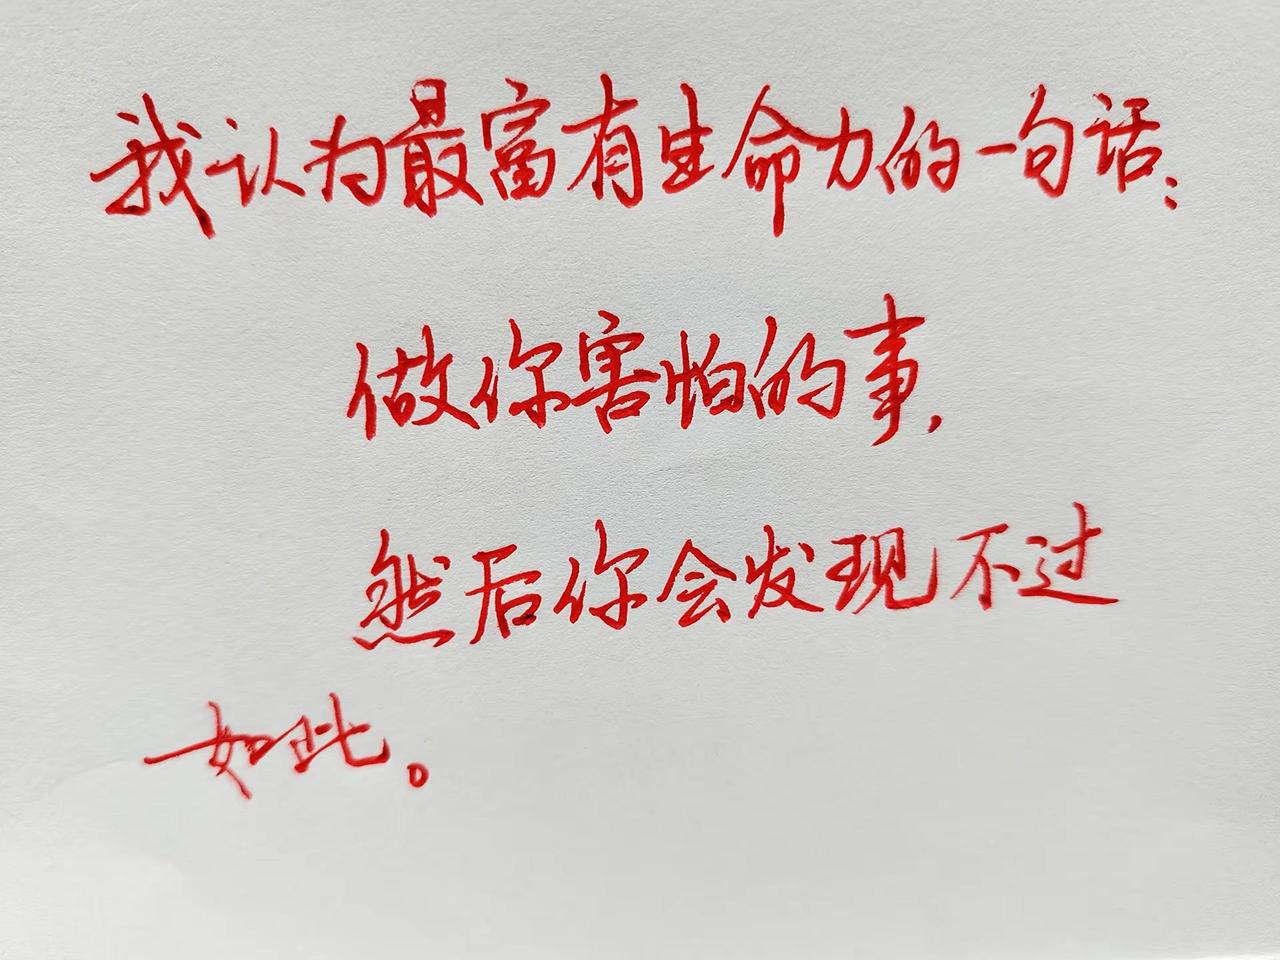 我认为最富有生命力的一句话：
做你害怕的事，
然后你会发现不过
如此。